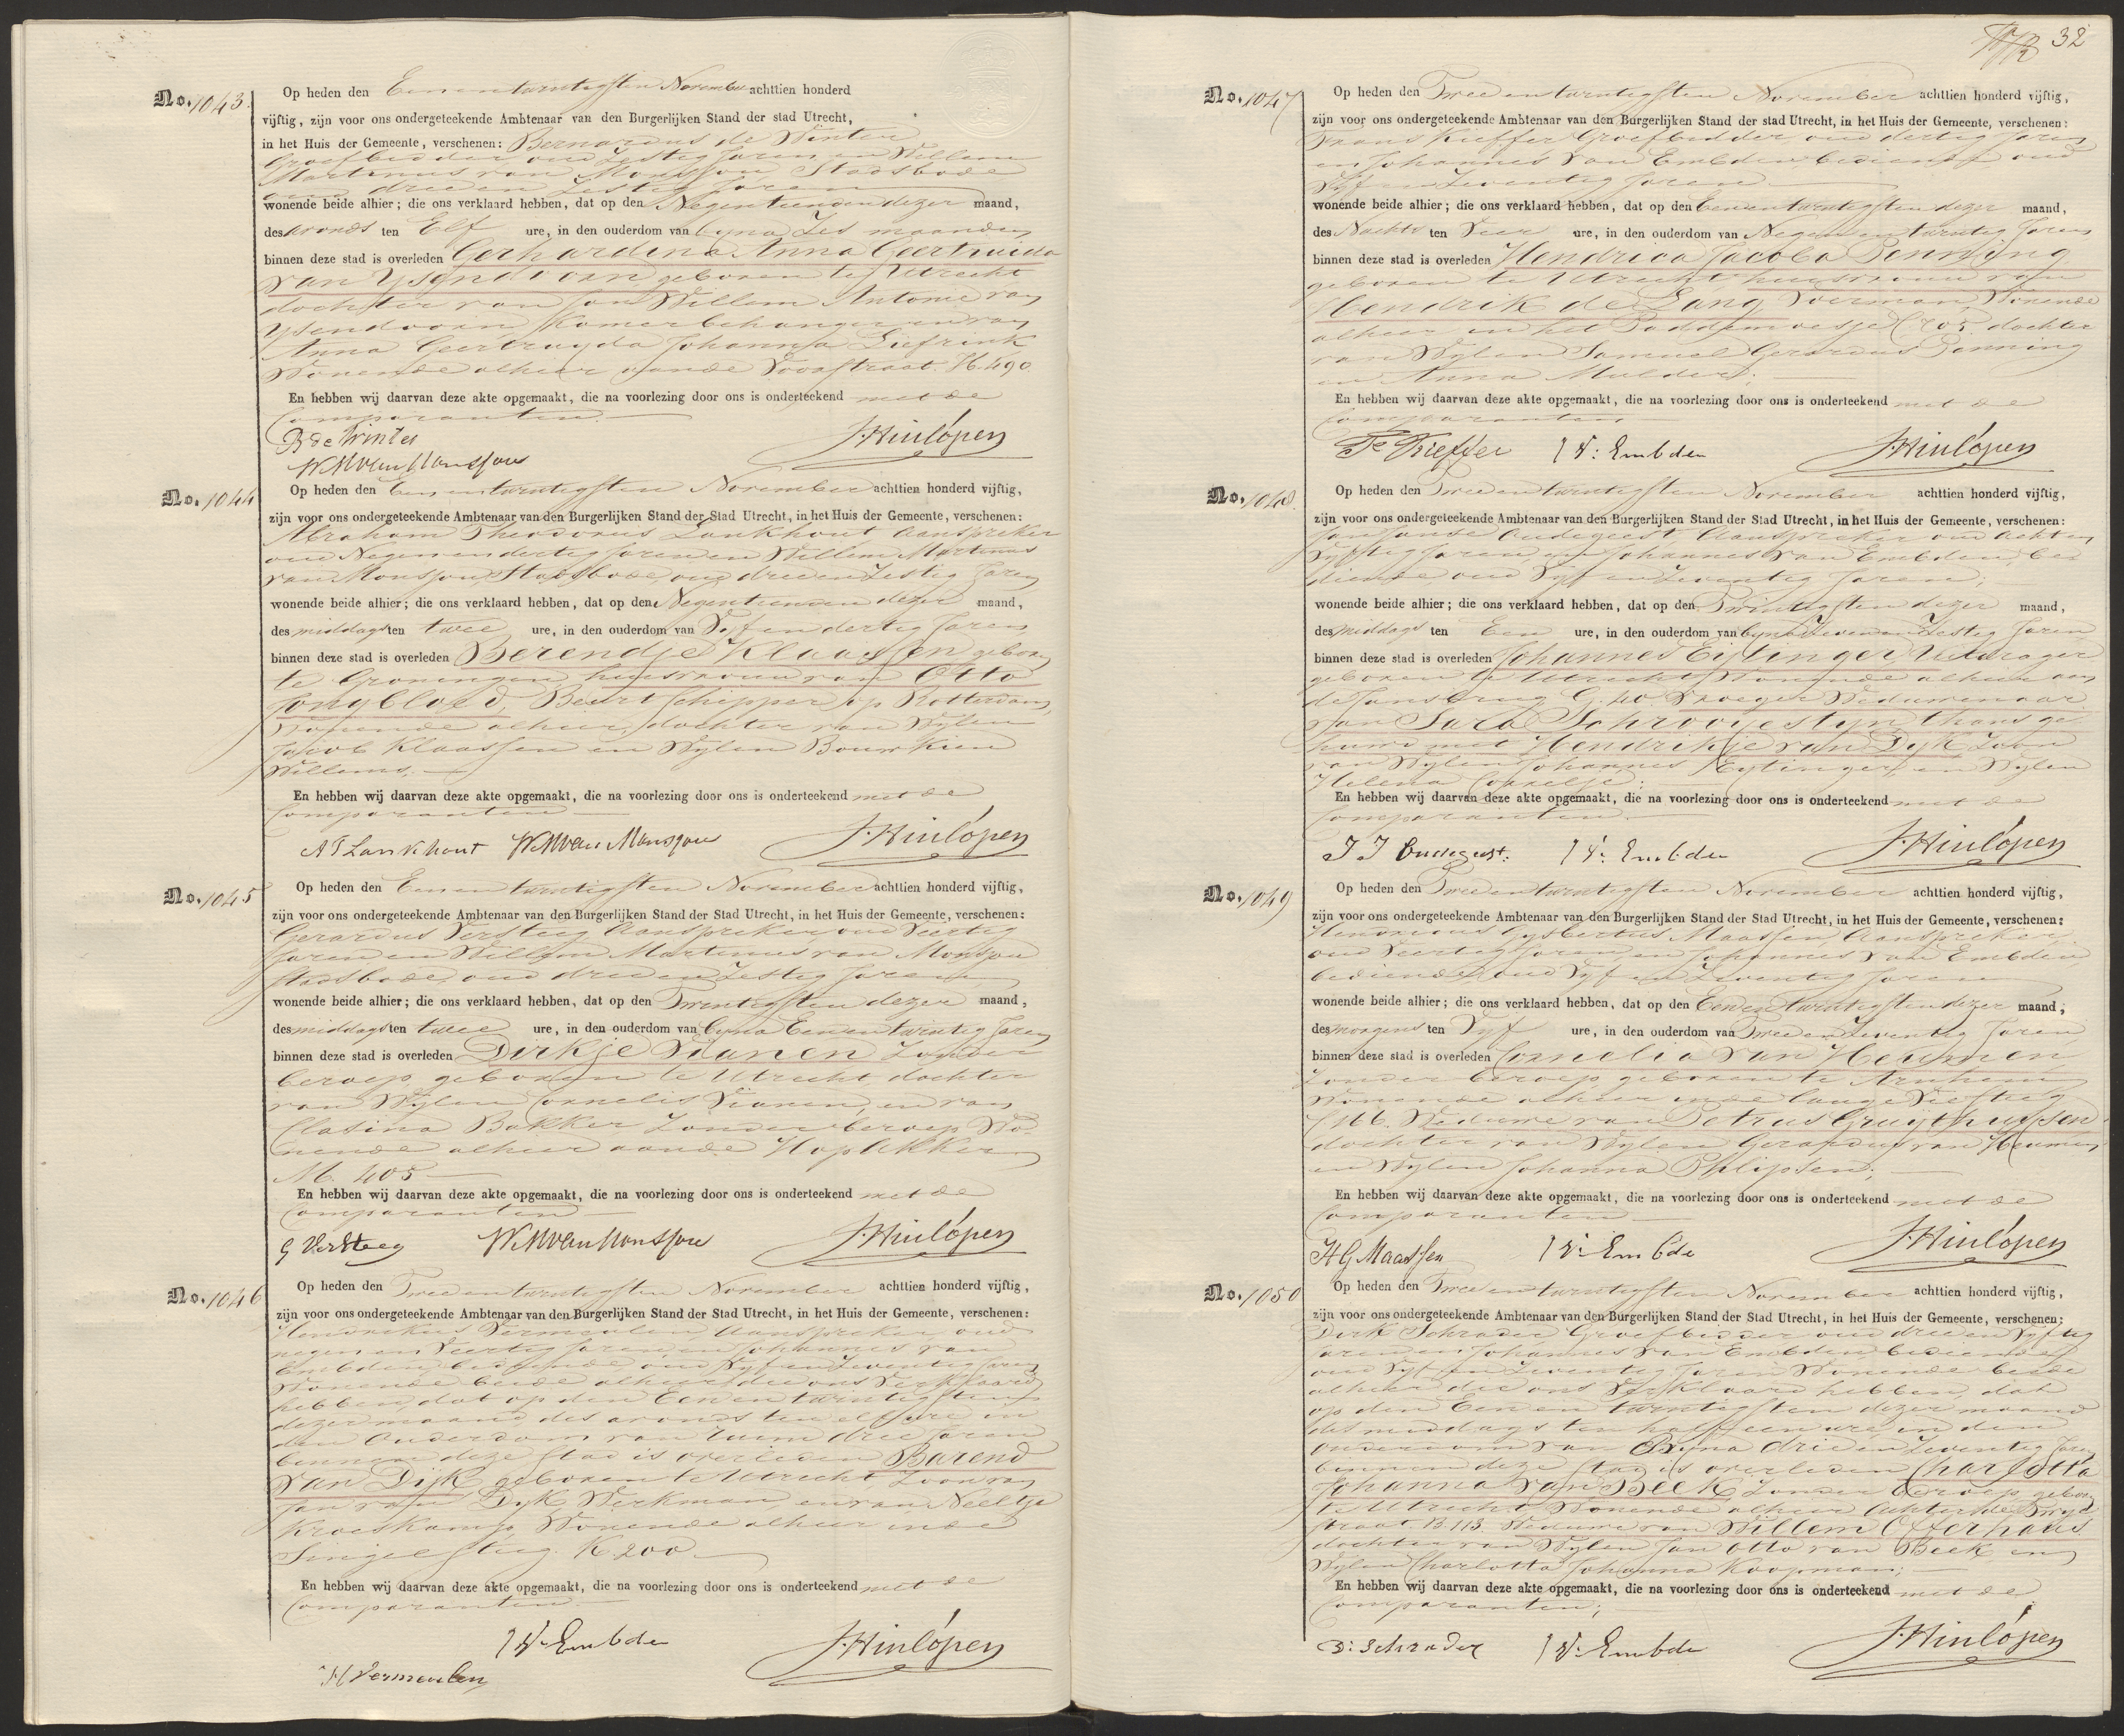 No. 1043.
Op heden den Eenentwintigsten November achttien honderd
vijftig, zijn voor ons ondergeteekende Ambtenaar van den Burgerlijken Stand der stad Utrecht,
in het Huis der Gemeente, verschenen: Bernardus de Winter
Groefbidder, oud Zestig Jaren en Willem
Martinus van Monsjou Stadsbode
oud drieen Zestig Jaren
wonende beide alhier; die ons verklaard hebben, dat op den Negentienden dezer maand,
des avonds ten Elf ure, in den ouderdom van byna Zes maanden
binnen deze stad is overleden Gerhardina Anna Geertruida
van Ysendoorn geboren te Utrecht
dochter van Jan Willem Antonie van
Ysendoorn Kamerbehanger en van
Anna Geertruyda Johanna Liefrink
Wonende alhier aande Voorstraat. H. 490.
En hebben wij daarvan deze akte opgemaakt, die na voorlezing door ons is onderteekend met de
Comparanten.
B de Winter
J. Hinlópen
W M van Monsjou
No. 1044
Op heden den Eenentwintigsten November achttien honderd vijftig,
zijn voor ons ondergeteekende Ambtenaar van den Burgerlijken Stand der Stad Utrecht, in het Huis der Gemeente, verschenen:
Abraham Theodorus Lankhout Aanspreker
oud Negenendertig Jaren en Willem Martinus
van Monsjou Stadsbode, oud drieen Zestig Jaren
wonende beide alhier; die ons verklaard hebben, dat op den Negentienden dezer maand,
des middags ten twee ure, in den ouderdom van Vyfendertig Jaren
binnen deze stad is overleden Berendje Klaassen geboren
te Groningen huisvrouw van Otto
Jongbloed, Beurtschipper op Rotterdam,
Wonende alhier, dochter van Wylen
Jacob Klaassen en Wylen Bouwkien
Willems.
En hebben wij daarvan deze akte opgemaakt, die na voorlezing door ons is onderteekend met de
Comparanten
A T Lankhout W M van Monsjou J. Hinlópen
No. 1045
Op heden den Eenentwintigsten November achttien honderd vijftig,
zijn voor ons ondergeteekende Ambtenaar van den Burgerlijken Stand der Stad Utrecht, in het Huis der Gemeente, verschenen:
Gerardus Versteeg Aanspreker oud Veertig
Jaren en Willem Martinus van Monsjou
Stadsbode, oud drieen Zestig Jaren
wonende beide alhier; die ons verklaard hebben, dat op den Twintigsten dezer maand,
des middags ten twee ure, in den ouderdom van byna Eenentwintig Jaren
binnen deze stad is overleden Dirkje Vianen Zonder
beroep, geboren te Utrecht dochter
van Wylen Cornelis Vianen, en van
Clasina Bakker Zonder beroep Wo-
nende alhier aande Hopakker
M. 405
En hebben wij daarvan deze akte opgemaakt, die na voorlezing door ons is onderteekend met de
Comparanten
G Versteeg W M van Monsjou J. Hinlópen
No. 1046
Op heden den Tweeentwintigsten November achttien honderd vijftig,
zijn voor ons ondergeteekende Ambtenaar van den Burgerlijken Stand der Stad Utrecht, in het Huis der Gemeente, verschenen:
Hendrikus Vermeulen Aanspreker oud
negen en Veertig Jaren, en Johannes van
Embden, bediende oud Vyf en Zeventig Jaren
Wonende beide alhier die ons Verklaard
hebben, dat op den Eenentwintigsten
dezer maand, des avonds ten elf ure in
den Ouderdom van ruim drie Jaren
binnen deze stad is overleden Barend
van Dijk geboren te Utrecht, Zoon van
Jan van Dyk, Werkman, en van Neeltje
Kroeskamp, Wonende alhier inde
Singelsteeg. K. 200
En hebben wij daarvan deze akte opgemaakt, die na voorlezing door ons is onderteekend met de
Comparanten.
J V. Embden J. Hinlópen
H Vermeulen
32
No. 1047
Op heden den Tweeentwintigsten November achttien honderd vijftig,
zijn voor ons ondergeteekende Ambtenaar van den Burgerlijken Stand der stad Utrecht, in het Huis der Gemeente, verschenen:
Frans Kieffer Groefbidder, oud dertig Jaren
en Johannes van Embden bediende oud
Vyf en Zeventig Jaren
wonende beide alhier; die ons verklaard hebben, dat op den Eenentwintigsten dezer maand,
des Nachts ten Vier ure, in den ouderdom van Negenentwintig Jaren
binnen deze stad is overleden Hendrica Jacoba Penning
geboren te Utrecht huisvrouw van
Hendrik de Lang, Voerman, Wonende
alhier in het Paddemoesje C 705. dochter
van Wylen Samuel Gerardus Penning
en Anna Mulder;
En hebben wij daarvan deze akte opgemaakt, die na voorlezing door ons is onderteekend met de
Comparanten
Fs Kieffer J V: Embden J. Hinlópen
No. 1048.
Op heden den Tweeentwintigsten November achttien honderd vijftig,
zijn voor ons ondergeteekende Ambtenaar van den Burgerlijken Stand der Stad Utrecht, in het Huis der Gemeente, verschenen:
Jan Janse Oudegeest Aanspreker oud Acht en
Vyftig Jaren, en Johannes van Embden, be-
diende oud Vyf en Zeventig Jaren;
wonende beide alhier; die ons verklaard hebben, dat op den Twintigsten dezer maand,
des middags ten Een ure, in den ouderdom van byna Zevenen Zestig Jaren
binnen deze stad is overleden Johannes Eijtinger Uitdrager
geboren te Utrecht, Wonende alhier aan
de Jansbrug G. 40. Vroeger Weduwenaar
van Sara Schrooyestyn thans ge-
huwd met Hendrikje van Dyk Zoon
van Wylen Johannes Eytinger, en Wylen
Helena Cornelje;
En hebben wij daarvan deze akte opgemaakt, die na voorlezing door ons is onderteekend met de
Comparanten.
J J Oudegeest. J V: Embden J. Hinlópen
No. 1049
Op heden den Tweeentwintigsten November achttien honderd vijftig,
zijn voor ons ondergeteekende Ambtenaar van den Burgerlijken Stand der Stad Utrecht, in het Huis der Gemeente, verschenen:
Gysbertus Maassen, Aanspreker
oud Veertig Jaren, en Johannes van Embden
bediende, oud Vyf en Zeventig Jaren
wonende beide alhier; die ons verklaard hebben, dat op den Eenentwintigsten dezer maand;
des morgens ten Vyf ure, in den ouderdom van Tweeen Zeventig Jaren
binnen deze stad is overleden Cornelia van Heumen
Zonder beroep, geboren te Arnhem
Wonende alhier inde lange
166. Weduwe van Petrus Gruythuysen
dochter van Wylen Gerardus van Heumen
en Wylen Johanna Philipsen;
En hebben wij daarvan deze akte opgemaakt, die na voorlezing door ons is onderteekend met de
Comparanten
H G Maassen J V: Embde J. Hinlópen
No. 1050
Op heden den Tweeentwintigsten November achttien honderd vijftig,
zijn voor ons ondergeteekende Ambtenaar van den Burgerlijken Stand der Stad Utrecht, in het Huis der Gemeente, verschenen:
Dirk Schrader Groefbidder oud drieen Vyftig
Jaren en Johannes van Embden bediende
oud Vyf en Zeventig Jaren Wonende beide
alhier die ons Verklaard hebben, dat
op den Eenen twintigsten dezer maand
des middags ten half een ure in den
Ouderdom van Byna drieen Zeventig Jaren
binnen deze stad is overleden Charlotta
Johanna van Beek, Zonder beroep, geboren
te Utrecht, Wonende alhier Achter de Twyn-
straat B. 113. Weduwe van Willem Otterhaus
dochter van Wylen Jan Otto van Beek en
Wylen Charlotta Johanna Koopman;
En hebben wij daarvan deze akte opgemaakt, die na voorlezing door ons is onderteekend met de
Comparanten;
D: Schrader J V: Embde J. Hinlópen